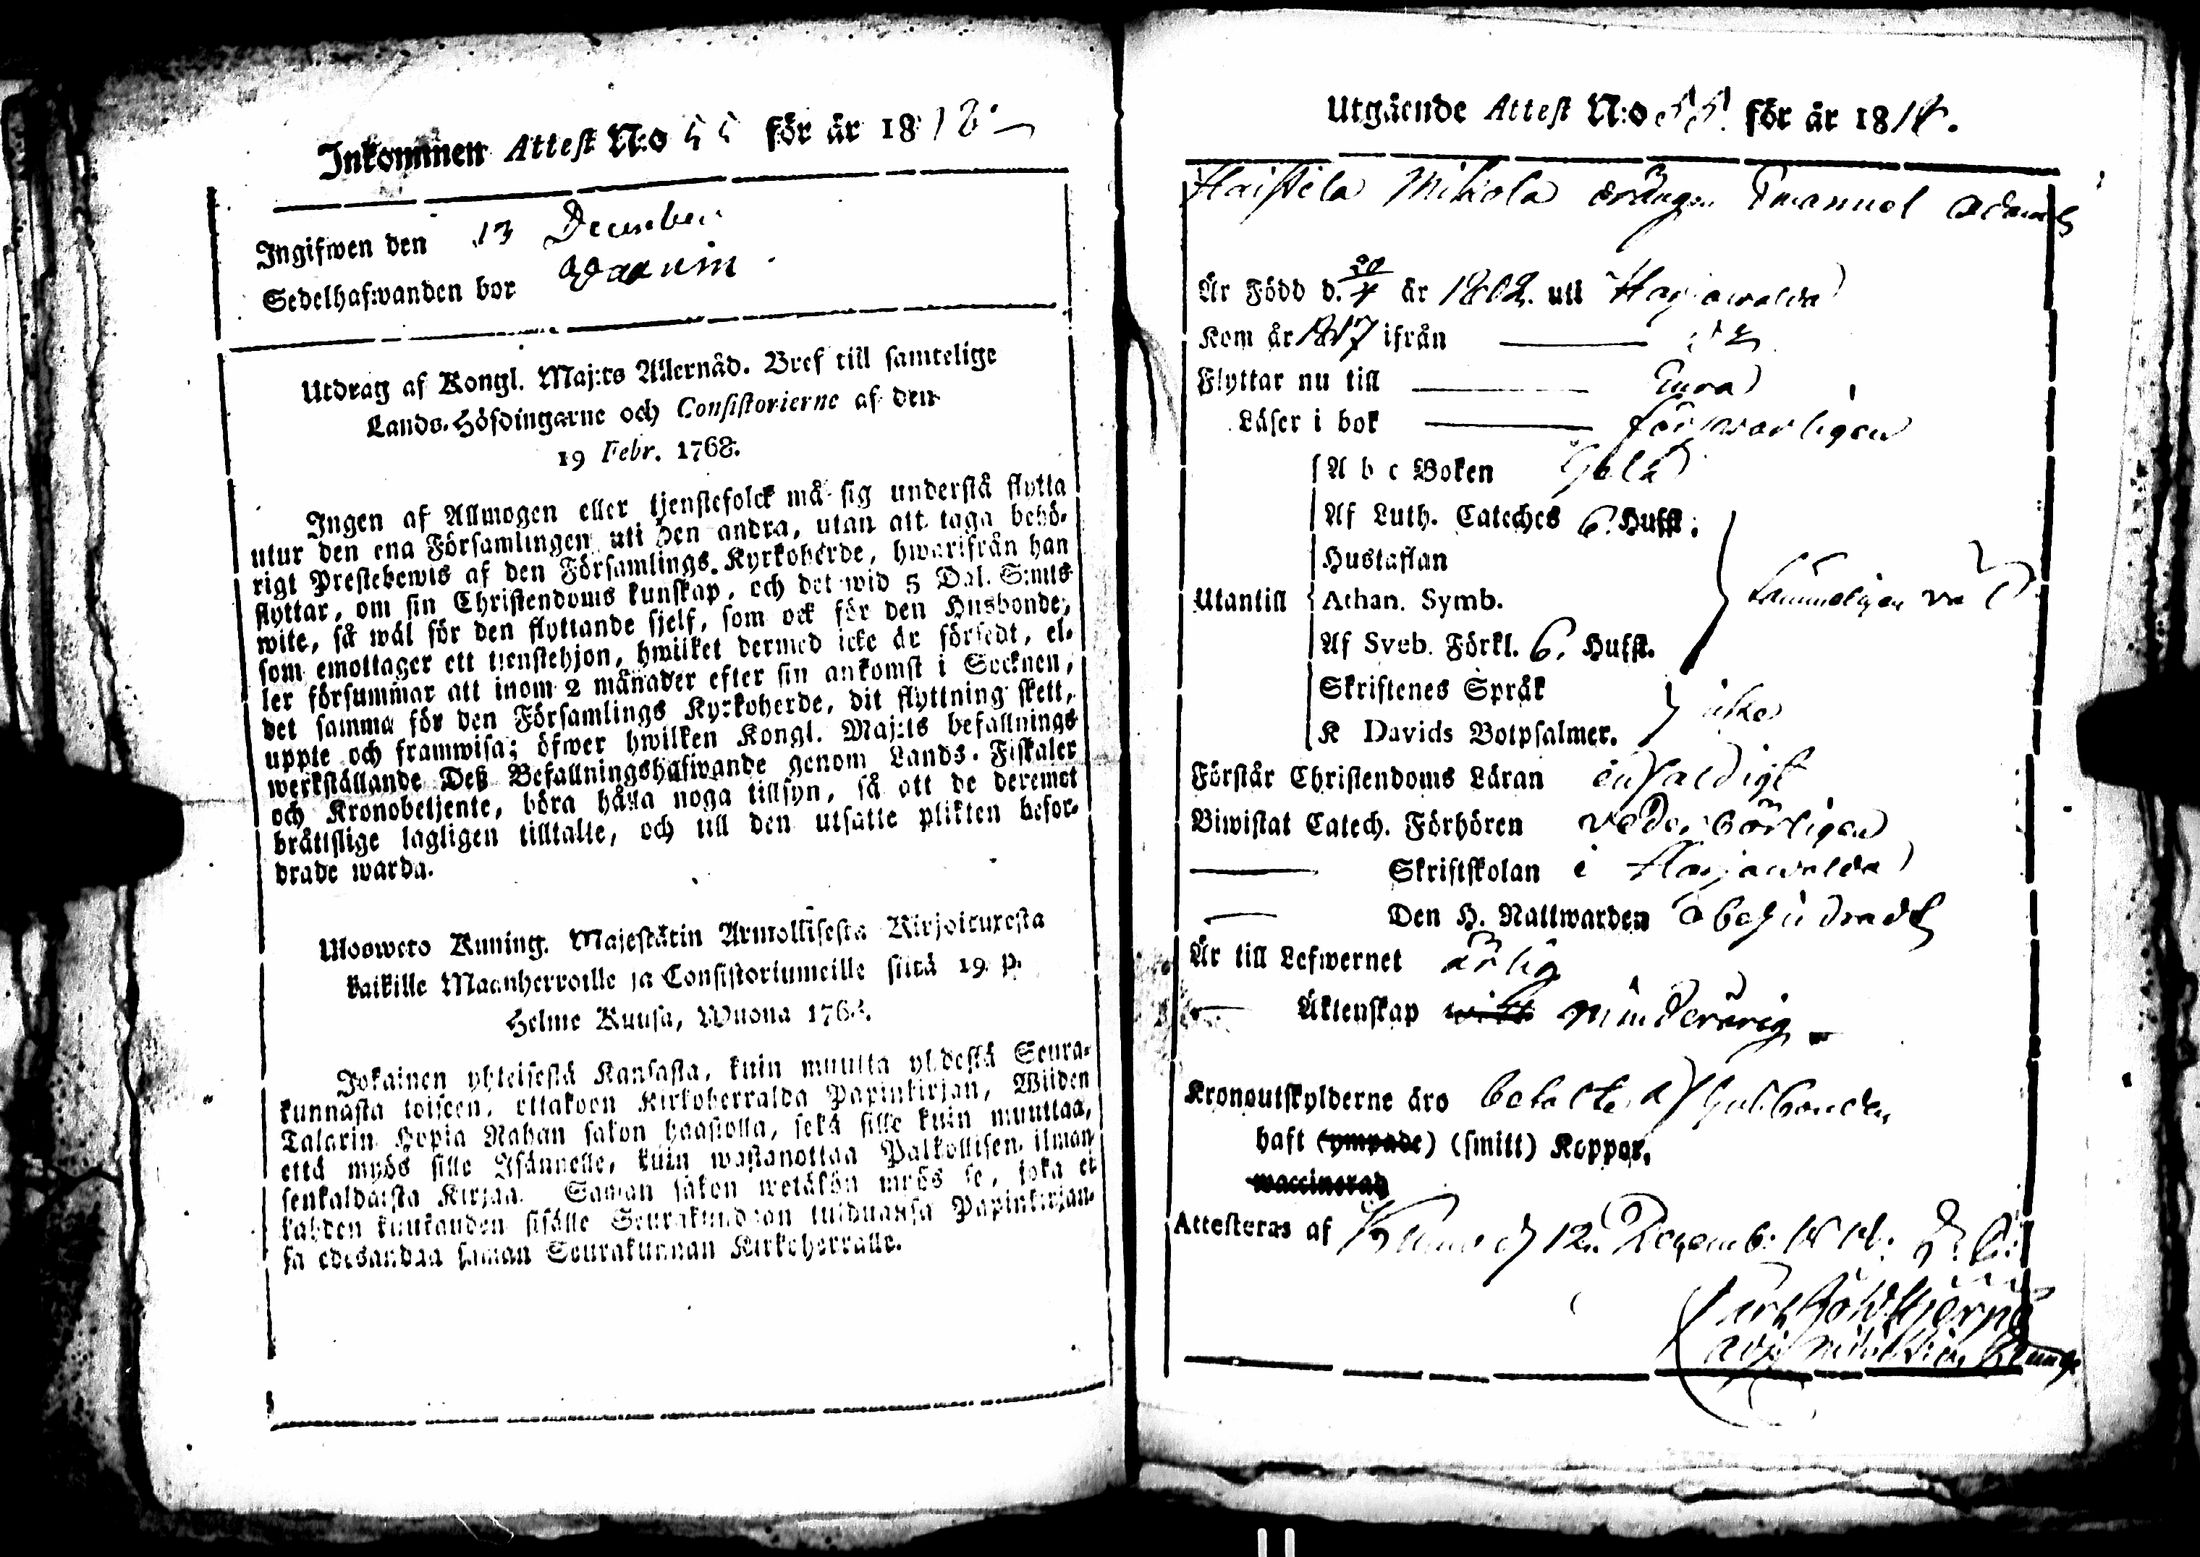 Inkommen Attest N:o 55 för är 1818.
Ingifwen den 13 December
Sedelhafwanden bor
Utdrag af Kongl. Maj:ts Allernåd. Bref till samtelige
Lands-Höfdingarne och Consistorierne af den
19 Febr. 1768.
Ingen af Allmogen eller tjenstefolck må sig understå flytta
utur den ena Församlingen uti den andra, utan att taga behö-
rigt Prestebewis af den Församlings Kyrkoherde, hwarifrån han
flyttar, om sin Christendoms kunskap, och det wid 5 Dal. S:mts
wite, så wäl för den flyttande sjelf, som ock för den Husbonde,
som emottager ett tienstehjon, hwilket dermed icke är försedt, el-
ler försummar att inom 2 månader efter sin ankomst i Socknen,
det samma för den Församlings Kyrkoherde, dit flyttning skett,
uppte och framwisa; öfwer hwilken Kongl. Maj:ts befallnings
werkställande Deß Befallningshafwande genom Lands-Fiskaler
och Kronobetjente, böra hålla noga tillsyn, så att de deremot
bråttslige lagligen tilltalte, och till den utsatte plikten befor-
drade warda.
Uloswero Kuning. Majestätin Armollisesta Kirjoituxesta
kaikille Maanherroille ja Consistoriumeille siitä 19 p.
Helme Kuusa, Wuona 1768.
Jokainen yhteisestä Kansasta, kuin muutta yhdestä Seura-
kunnasta toiseen, ottakoon Kirkoherralda Papinkirjan, Wiiden
Talarin Hopia Rahan sakon haastolla, sekä sille kuin muuttaa,
että myös sille Isännelle, kuin wastanottaa Palkollisen ilman
senkaldaista Kirjaa. Saman sakon wetäkön myös se, joka ei
kahden kuukauden sisälle Seurakundaan tulduansa Papinkirjan-
sa edesandaa saman Seurakunnan Kirkoherralle.
Utgäende Attest N:o 55. för är 1818.
Haistila Mikola drängen Emanuel Adamss
Är Född d. 20/4 år 1802. uti Harjawalda
Kom år 1817 ifrån
Flyttar nu till Eura
Läser i bok försvarligen
A b c Boken hela
Af Luth. Cateches 6. Hufst.
Hustaflan
Utantill Athan. Symb.
Af Sveb. Förkl. 6. Hufst.
Skriftenes Språk
K Davids Botpsalmer. icke
Förstår Christendoms Läran enfaldigt
Biwistat Catech. Förhören vederbörligen
Skriftskolan i Harjawalda
Den H. Nattwarden obehindradt
Är till Lefwernet ärlig
Äktenskap minderårig
Kronoutskylderne äro betalte af Husbonden
haft (ympade) (smitt) Koppor,
waccinerad
Attesteras af 12. Decemb. 1818.